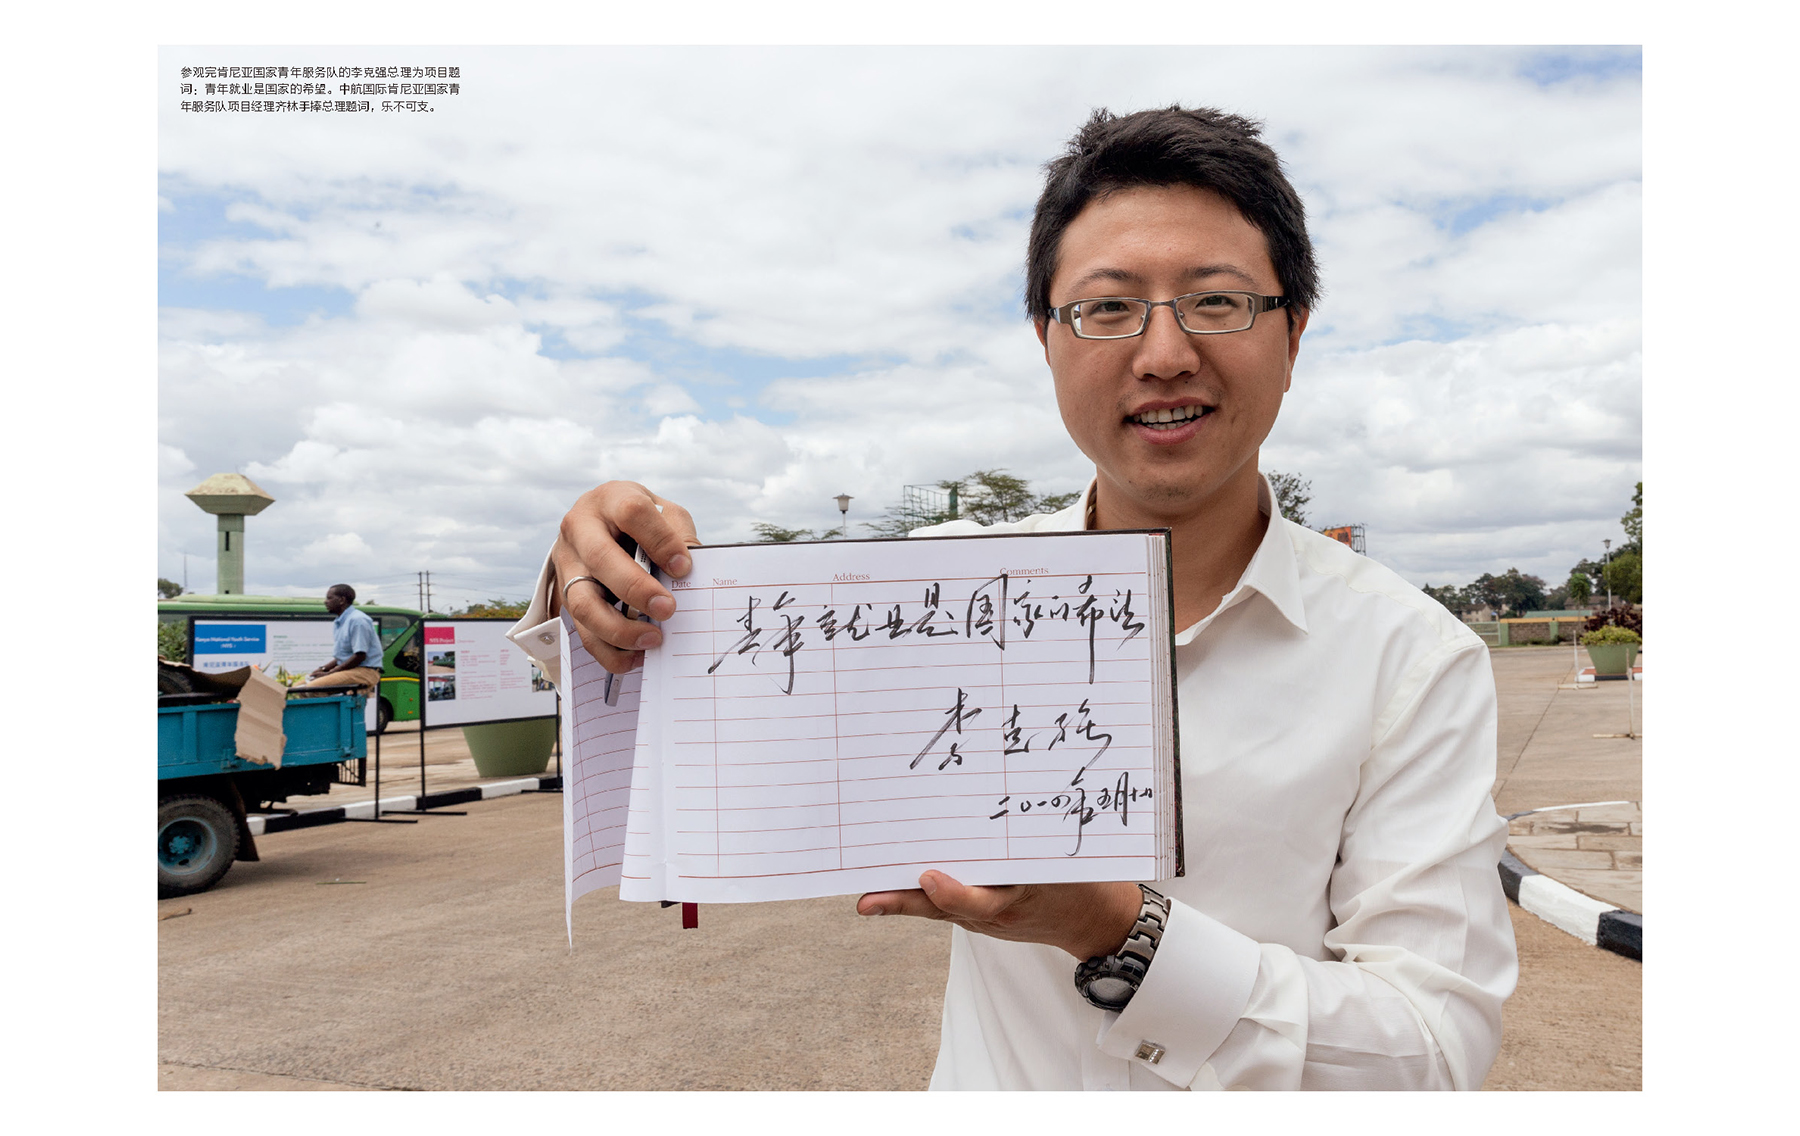 参观完肯尼亚国家青年服务队的李克强总理为项目题
词：青年就业是国家的希望。中航国际肯尼亚国家青
年服务队项目经理齐林手捧总理题词，乐不可支。
Date Name Address Comments
青年就业是国家的希望
李克强
二〇一四年五月十日
Kenya National Youth Service
(NYS)
肯尼亚青年服务队
NYS Project